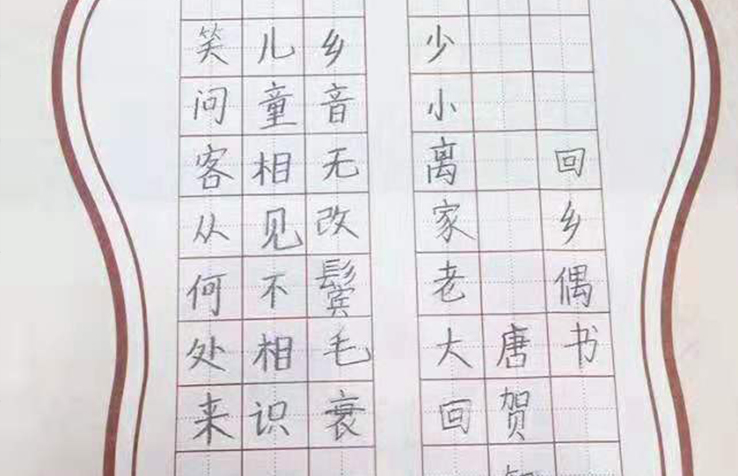 回乡偶书
唐贺
少小离家老大回
乡音无改鬓毛衰
儿童相见不相识
笑问客从何处来